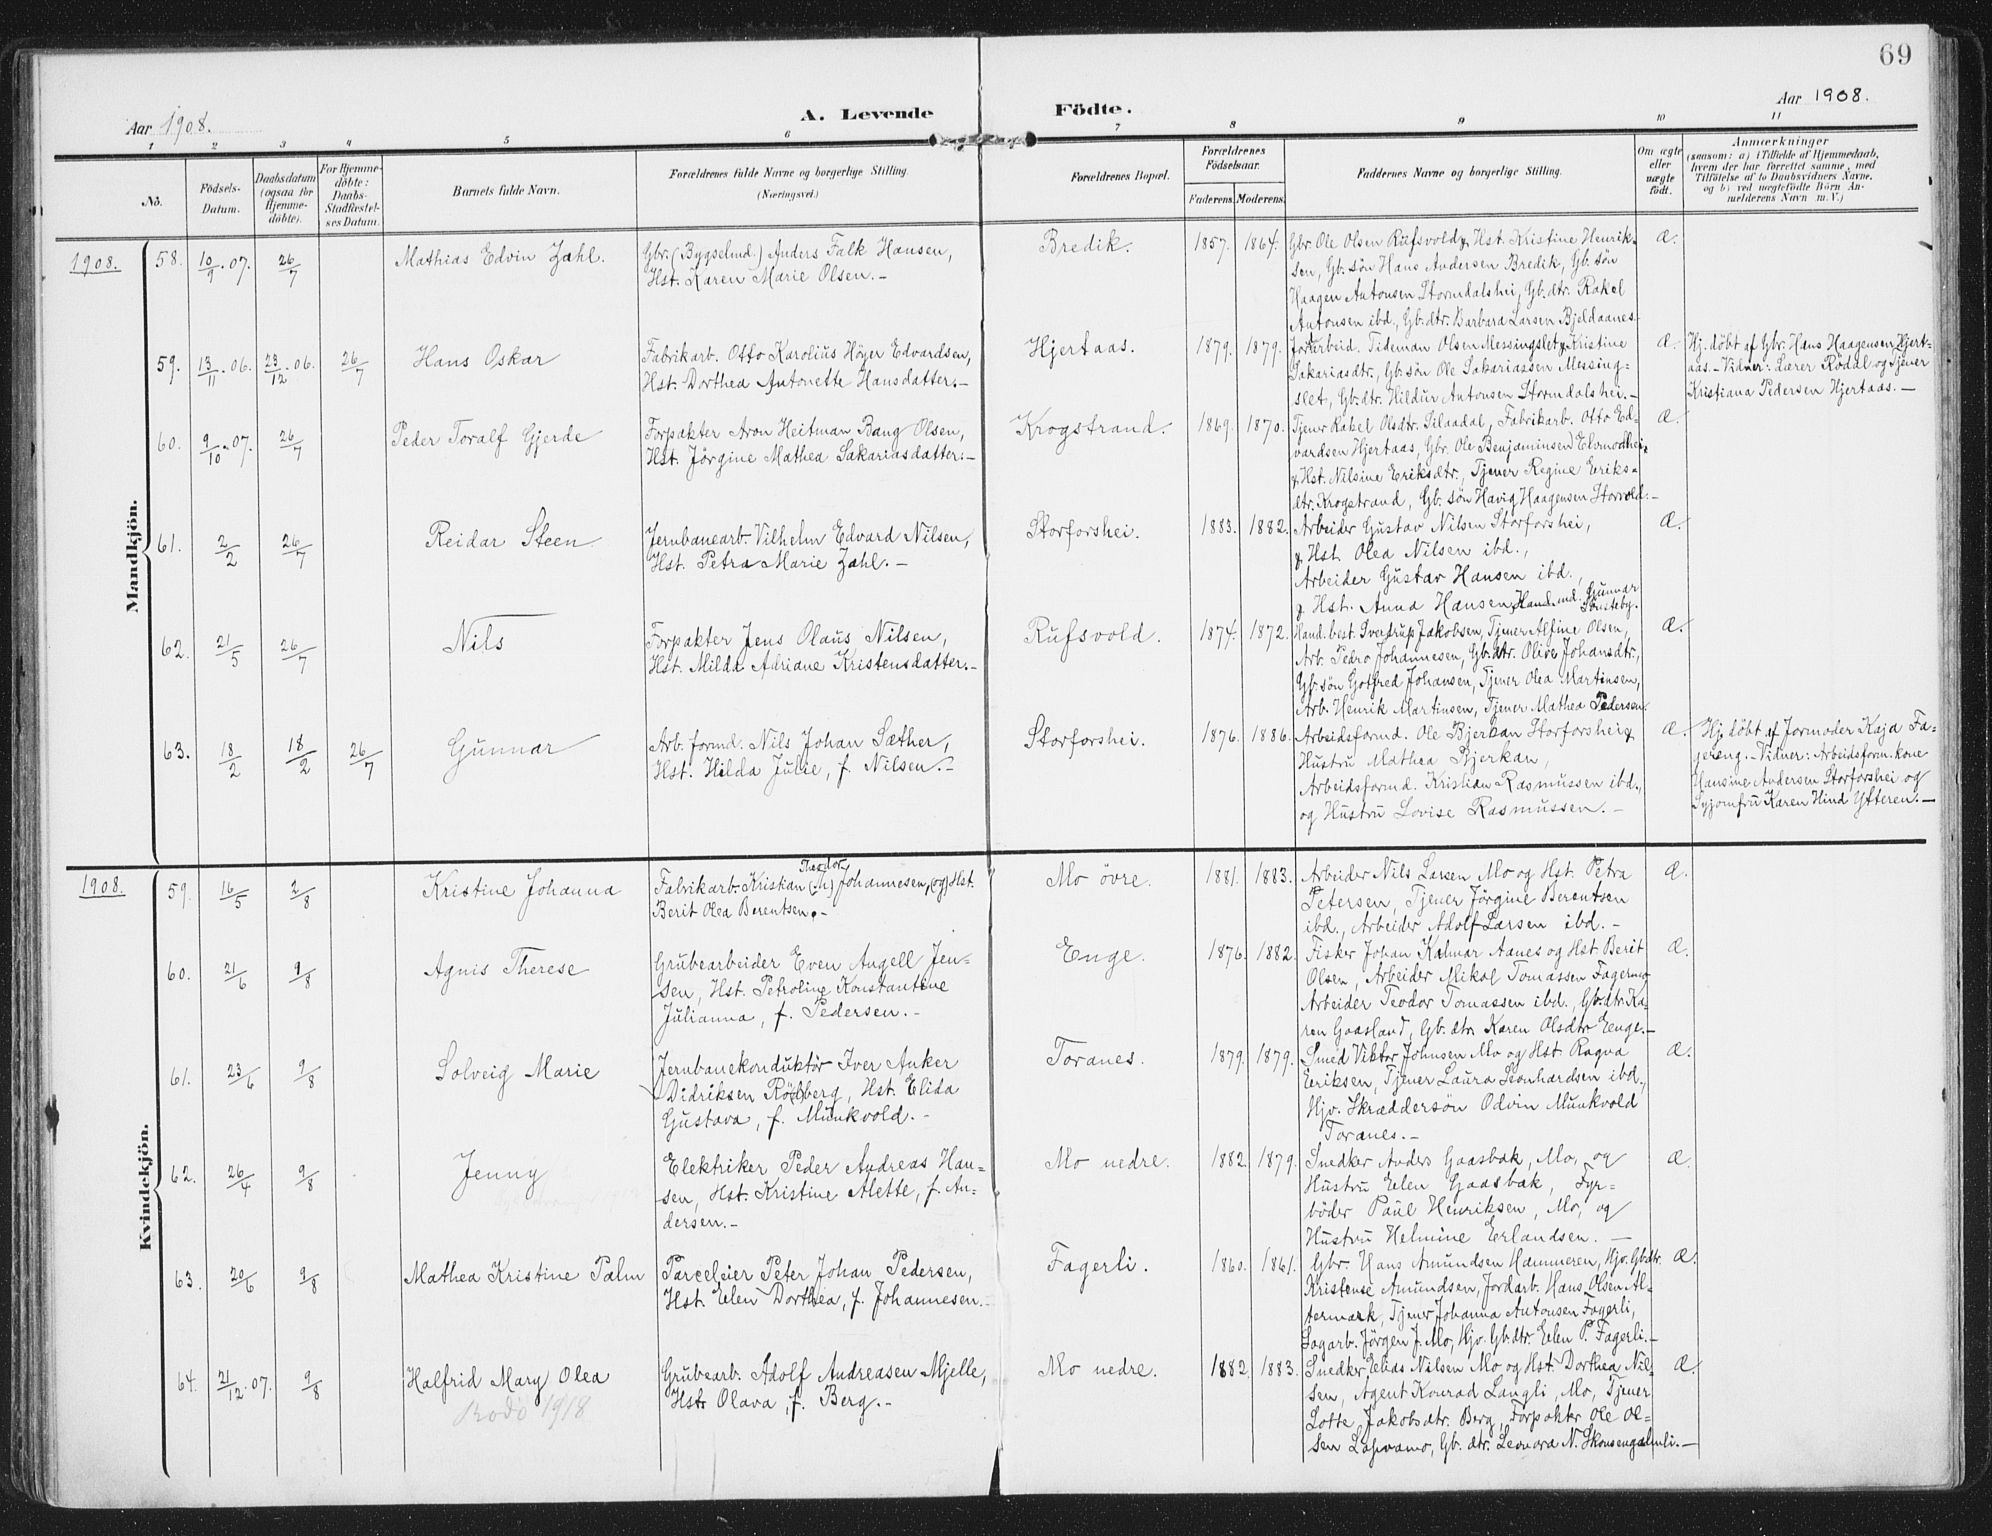 69
Aar 1908.
A. Levende Födte.
Aar 1908.
1 2 3 4 5 6 7 8 9 10 11
No.
Födsels-Datum.
Daabsdatum (ogsaa for Hjemmedöbte).
For Hjemmedöbte: Daabs-Stadfæstelses Datum.
Barnets fulde Navn.
Forældrenes fulde Navne og borgerlige Stilling.
(Næringsvei.)
Forældrenes Bopæl.
Forældrenes Födselsaar.
Faderens. Moderens.
Faddernes Navne og borgerlige Stilling.
Om ægte eller uægte födt.
Anmærkninger
(saasom: a) i Tilfælde af Hjemmedaab, hvem der har forrettet samme, med Tilföielse af to Daabsvidners Navne, og b) ved uægtefödte Börn Anmelderens Navn m. V.)
Mandkjön.
1908. 58. 10/9.07. 26/7 Mathias Edvin Zahl. Gbr. (Bygselmd.) Anders Falk Hansen, Bredik. 1857. 1864. Gbr. Ole Olsen Rufsvold & Hst. Kristine Henrik- Æ.
Hst. Karen Marie Olsen.- sen, Gb. søn Hans Andersen Bredik, Gb. søn
Haagen Antonsen Stormdalshei, Gb. dtr. Rakel
Antonsen ibd., Gb. dtr. Barbara Larsen Bjeldaanes.
59. 13/11.06. 23/12.06. 26/7 Hans Oskar Fabrikarb. Otto Karolius Höyer Edvardsen, Hjertaas. 1879. 1879. Jordarbeid. Tideman Olsen Messingslet & Kristine Æ. Hj. döbt af Gbr. Hans Haagensen Hjert-
Hst. Dorthea Antonette Hansdatter.- Sakariasdtr., Gb. søn Ole Sakariassen Messing- aas. - Vidner: Lærer Rödal og Tjener
slet, Gb. dtr. Hildur Antonsen Stormdalshei.- Kristiana Pedersen Hjertaas.-
60. 9/10.07. 26/7 Peder Toralf Gjerde Forpakter Aron Heitman Bang Olsen, Krogstrand. 1869. 1870. Tjener Rakel Olsdtr. Tilaadal, Fabrikarb. Otto Ed- Æ.
Hst. Jörgine Mathea Sakariasdatter.- vardsen Hjertaas, Gbr. Ole Benjaminsen
& Hst. Nilsine Eriksdtr., Tjener Regine Eriks-
dtr. Krogstrand, Gb. søn Havig Haagensen Storvold.-
61. 2/2 26/7 Reidar Steen Jernbanearb. Vilhelm Edvard Nilsen, Storforshei. 1883. 1882. Arbeider Gustav Nilsen Storforshei, Æ.
Hst. Petra Marie Zahl.- & Hst. Olea Nilsen ibd.,
Arbeider Gustav Hansen ibd.,
& Hst. Anna Hansen, Hand.md. Gunnar
62. 21/5 26/7 Nils Forpakter Jens Olaus Nilsen, Rufsvold. 1874. 1872. Hand. best. Sverdrup Jakobsen, Tjener Alfine Olsen, Æ.
Hst. Milda Adriane Kristensdatter.- Arb. Pedro Johannesen, Gb. dtr. Olive Johansdtr.,
Gb. søn Gotfred Johansen, Tjener Olea Martinsen,
Arb. Henrik Martinsen, Tjener Mathea Pedersen.
63. 18/2 18/2 26/7 Gunnar Arb. formd. Nils Johan Sæther, Storforshei. 1876. 1886. Arbeidsformd. Ole Bjerkan Storforshei & Æ. Hj. döbt af Jormoder Kaja Fa-
Hst. Hilda Julie, f. Nilsen.- Hustru Mathea Bjerkan, gereng. - Vidner: Arbeidsform. kone
Arbeidsformd. Kristian Rasmussen ibd., Hansine Andersen Storforshei og
og Hustru Lovise Rasmussen.- Syjomfru Karen Hind Ytteren.-
Kvindekjön.
1908. 59. 16/5 2/8 Kristine Johanna Fabrikarb. Kristian Theodor Johannesen, (og) Hst. Mo övre. 1881. 1883. Arbeider Nils Larsen Mo og Hst. Petra Æ.
Berit Olea Berentsen.- Petersen, Tjener Jörgine Berentsen
ibd., Arbeider Adolf Larsen ibd.-
60. 21/6 9/8 Agnis Therese Grubearbeider Even Angell Jen- Enge. 1876. 1882. Fisker Johan Kalmar Aanes og Hst. Berit Æ.
sen, Hst. Petroline Konstantine Olsen, Arbeider Mikal Tomassen Fagermo,
Julianna, f. Pedersen.- Arbeider Teodor Tomassen ibd., Gb. dtr. Ka-
ren Gaasland, Gb. dtr. Karen Olsdtr. Enge.-
61. 23/6 9/8 Solveig Marie Jernbanekonduktör Iver Anker Toranes. 1879. 1879. Smed Viktor Johnsen Mo og Hst. Ragna Æ.
Didriksen Rödberg, Hst. Elida Eriksen, Tjener Laura Leonhardsen ibd.,
Gustava, f. Munkvold.- Hjv. Skræddersön Odvin Munkvold
Toranes.-
62. 26/4 9/8 Jenny Elektriker Peder Andreas Han- Mo nedre. 1882. 1879. Snedker Anders Gaasbak, Mo, og Æ.
sen, Hst. Kristine Alette, f. An- Hustru Elen Gaasbak, Fyr-
dersen.- böder Paul Henriksen, Mo, og
Hustru Helmine Erlandsen.-
63. 20/6 9/8 Mathea Kristine Palm Parceleier Peter Johan Pedersen, Fagerli. 1860. 1861. Gbr. Hans Amundsen Hammeren, Hjv. Gbdtr. Æ.
Hst. Elen Dorthea, f. Johannesen.- Kristense Amundsen, Jordarb. Hans Olsen Al-
termark, Tjener Johanna Antonsen Fagerli,
Sagarb. Jörgen J. Mo, Hjv. Gbdtr. Elen P. Fagerli.-
64. 21/12.07. 9/8 Halfrid Mary Olea Grubearb. Adolf Andreasen Mjelle, Mo nedre. 1882. 1883. Snedker Elias Nilsen Mo og Hst. Dorthea Nil- Æ.
Bodö 1918 Hst. Olava, f. Berg.- sen, Agent Konrad Langli, Mo, Tjener
Lotte Jakobsdtr. Berg, Forpakter Ole Ol-
sen Lapvamo, Gb. dtr. Leonora N. Skonsengalmli.-